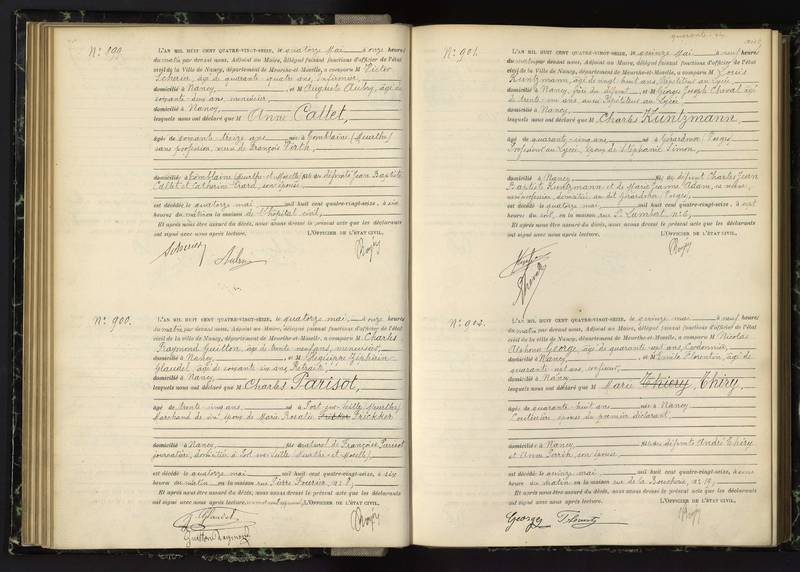 N° 899.
L'AN MIL HUIT CENT QUATRE-VINGT-SEIZE, le quatorze Mai à onze heures
du matin par devant nous, Adjoint au Maire, délégué faisant fonctions d'officier de l'état
civil de la Ville de Nancy, département de Meurthe-et-Moselle, a comparu M Victor
Scherier, âgé de quarante quatre ans, Infirmier,
domicilié à Nancy, et M Auguste Aubry, âgé de
soixante-six ans, menuisier,
domicilié à Nancy,
lesquels nous ont déclaré que M Anne Callet,
âgée de soixante treize ans née à Tomblaine (Meurthe)
sans profession, veuve de François Firth,
domiciliée à Tomblaine (Meurthe-et-Moselle) fille des défunts Jean Baptiste
Callet et Catherine son épouse
est décédée le quatorze mai mil huit cent quatre-vingt-seize, à six
heures du matin en la maison de l'hôpital civil,
Et après nous être assuré du décès, nous avons dressé le présent acte que les déclarants
ont signé avec nous après lecture. L'OFFICIER DE L'ÉTAT CIVIL,
N° 900.
L'AN MIL HUIT CENT QUATRE-VINGT-SEIZE, le quatorze mai, à onze heures
du matin par devant nous, Adjoint au Maire, délégué faisant fonctions d'officier de l'état
civil de la Ville de Nancy, département de Meurthe-et-Moselle, a comparu M Charles
Raymond Guillon, âgé de trente neuf ans, menuisier,
domicilié à Nancy et M Hégésippe
Glaudel, âgé de soixante six ans, Retraité,
domicilié à Nancy,
lesquels nous ont déclaré que M Charles Parisot,
âgé de trente cinq ans né à Port-sur-Seille (Meurthe)
Marchand de vin, époux de Marie Rosalie Frickker
domicilié à Nancy fils naturel de Françoise Parisot
journalière, domiciliée à Port-sur-Seille (Meurthe-et-Moselle),
est décédé le quatorze mai mil huit cent quatre-vingt-seize, à six
heures du matin en la maison rue Pierre Fourier, n° 8,
Et après nous être assuré du décès, nous avons dressé le présent acte que les déclarants
ont signé avec nous après lecture. L'OFFICIER DE L'ÉTAT CIVIL,
Glaudel
N° 901.
L'AN MIL HUIT CENT QUATRE-VINGT-SEIZE, le quinze Mai à neuf heures
du matin par devant nous, Adjoint au Maire, délégué faisant fonctions d'officier de l'état
civil de la Ville de Nancy, département de Meurthe-et-Moselle, a comparu M Louis
Kuntzmann, âgé de vingt huit ans, Répétiteur au Lycée,
domicilié à Nancy, fils du défunt et M Georges Joseph Cheval âgé
de trente-un ans aussi Répétiteur au Lycée
domicilié à Nancy
lesquels nous ont déclaré que M Charles Kuntzmann,
âgé de quarante-cinq ans né à Gérardmer (Vosges)
Professeur au Lycée, époux de Stéphanie Simon,
domicilié à Nancy fils de défunt Charles Jean
Baptiste Kuntzmann et de Marie Jeanne Adam, sa veuve,
sans profession, domiciliée au dit Gérardmer (Vosges)
est décédé le quatorze mai, mil huit cent quatre-vingt-seize, à sept
heures du soir, en la maison rue St Lambert, n° 6,
Et après nous être assuré du décès, nous avons dressé le présent acte que les déclarants
ont signé avec nous après lecture. L'OFFICIER DE L'ÉTAT CIVIL,
Cheval
N° 902.
L'AN MIL HUIT CENT QUATRE-VINGT-SEIZE, le quinze mai à neuf heures
du matin par devant nous, Adjoint au Maire, délégué faisant fonctions d'officier de l'état
civil de la Ville de Nancy, département de Meurthe-et-Moselle, a comparu M Nicolas
George, âgé de quarante sept ans, Cordonnier,
domicilié à Nancy, et M Emile Florentin, âgé de
quarante sept ans,
domicilié à Nancy
lesquels nous ont déclaré que M Marie Thiery Thiry,
âgée de quarante huit ans née à Nancy
Couturière, épouse du premier déclarant,
domiciliée à Nancy, fille des défunts André Thiry
et Anne son épouse,
est décédée le quinze mai, mil huit cent quatre-vingt-seize, à
heures du matin en la maison rue de la Boucherie, n°
Et après nous être assuré du décès, nous avons dressé le présent acte que les déclarants
ont signé avec nous après lecture. L'OFFICIER DE L'ÉTAT CIVIL,
Georges